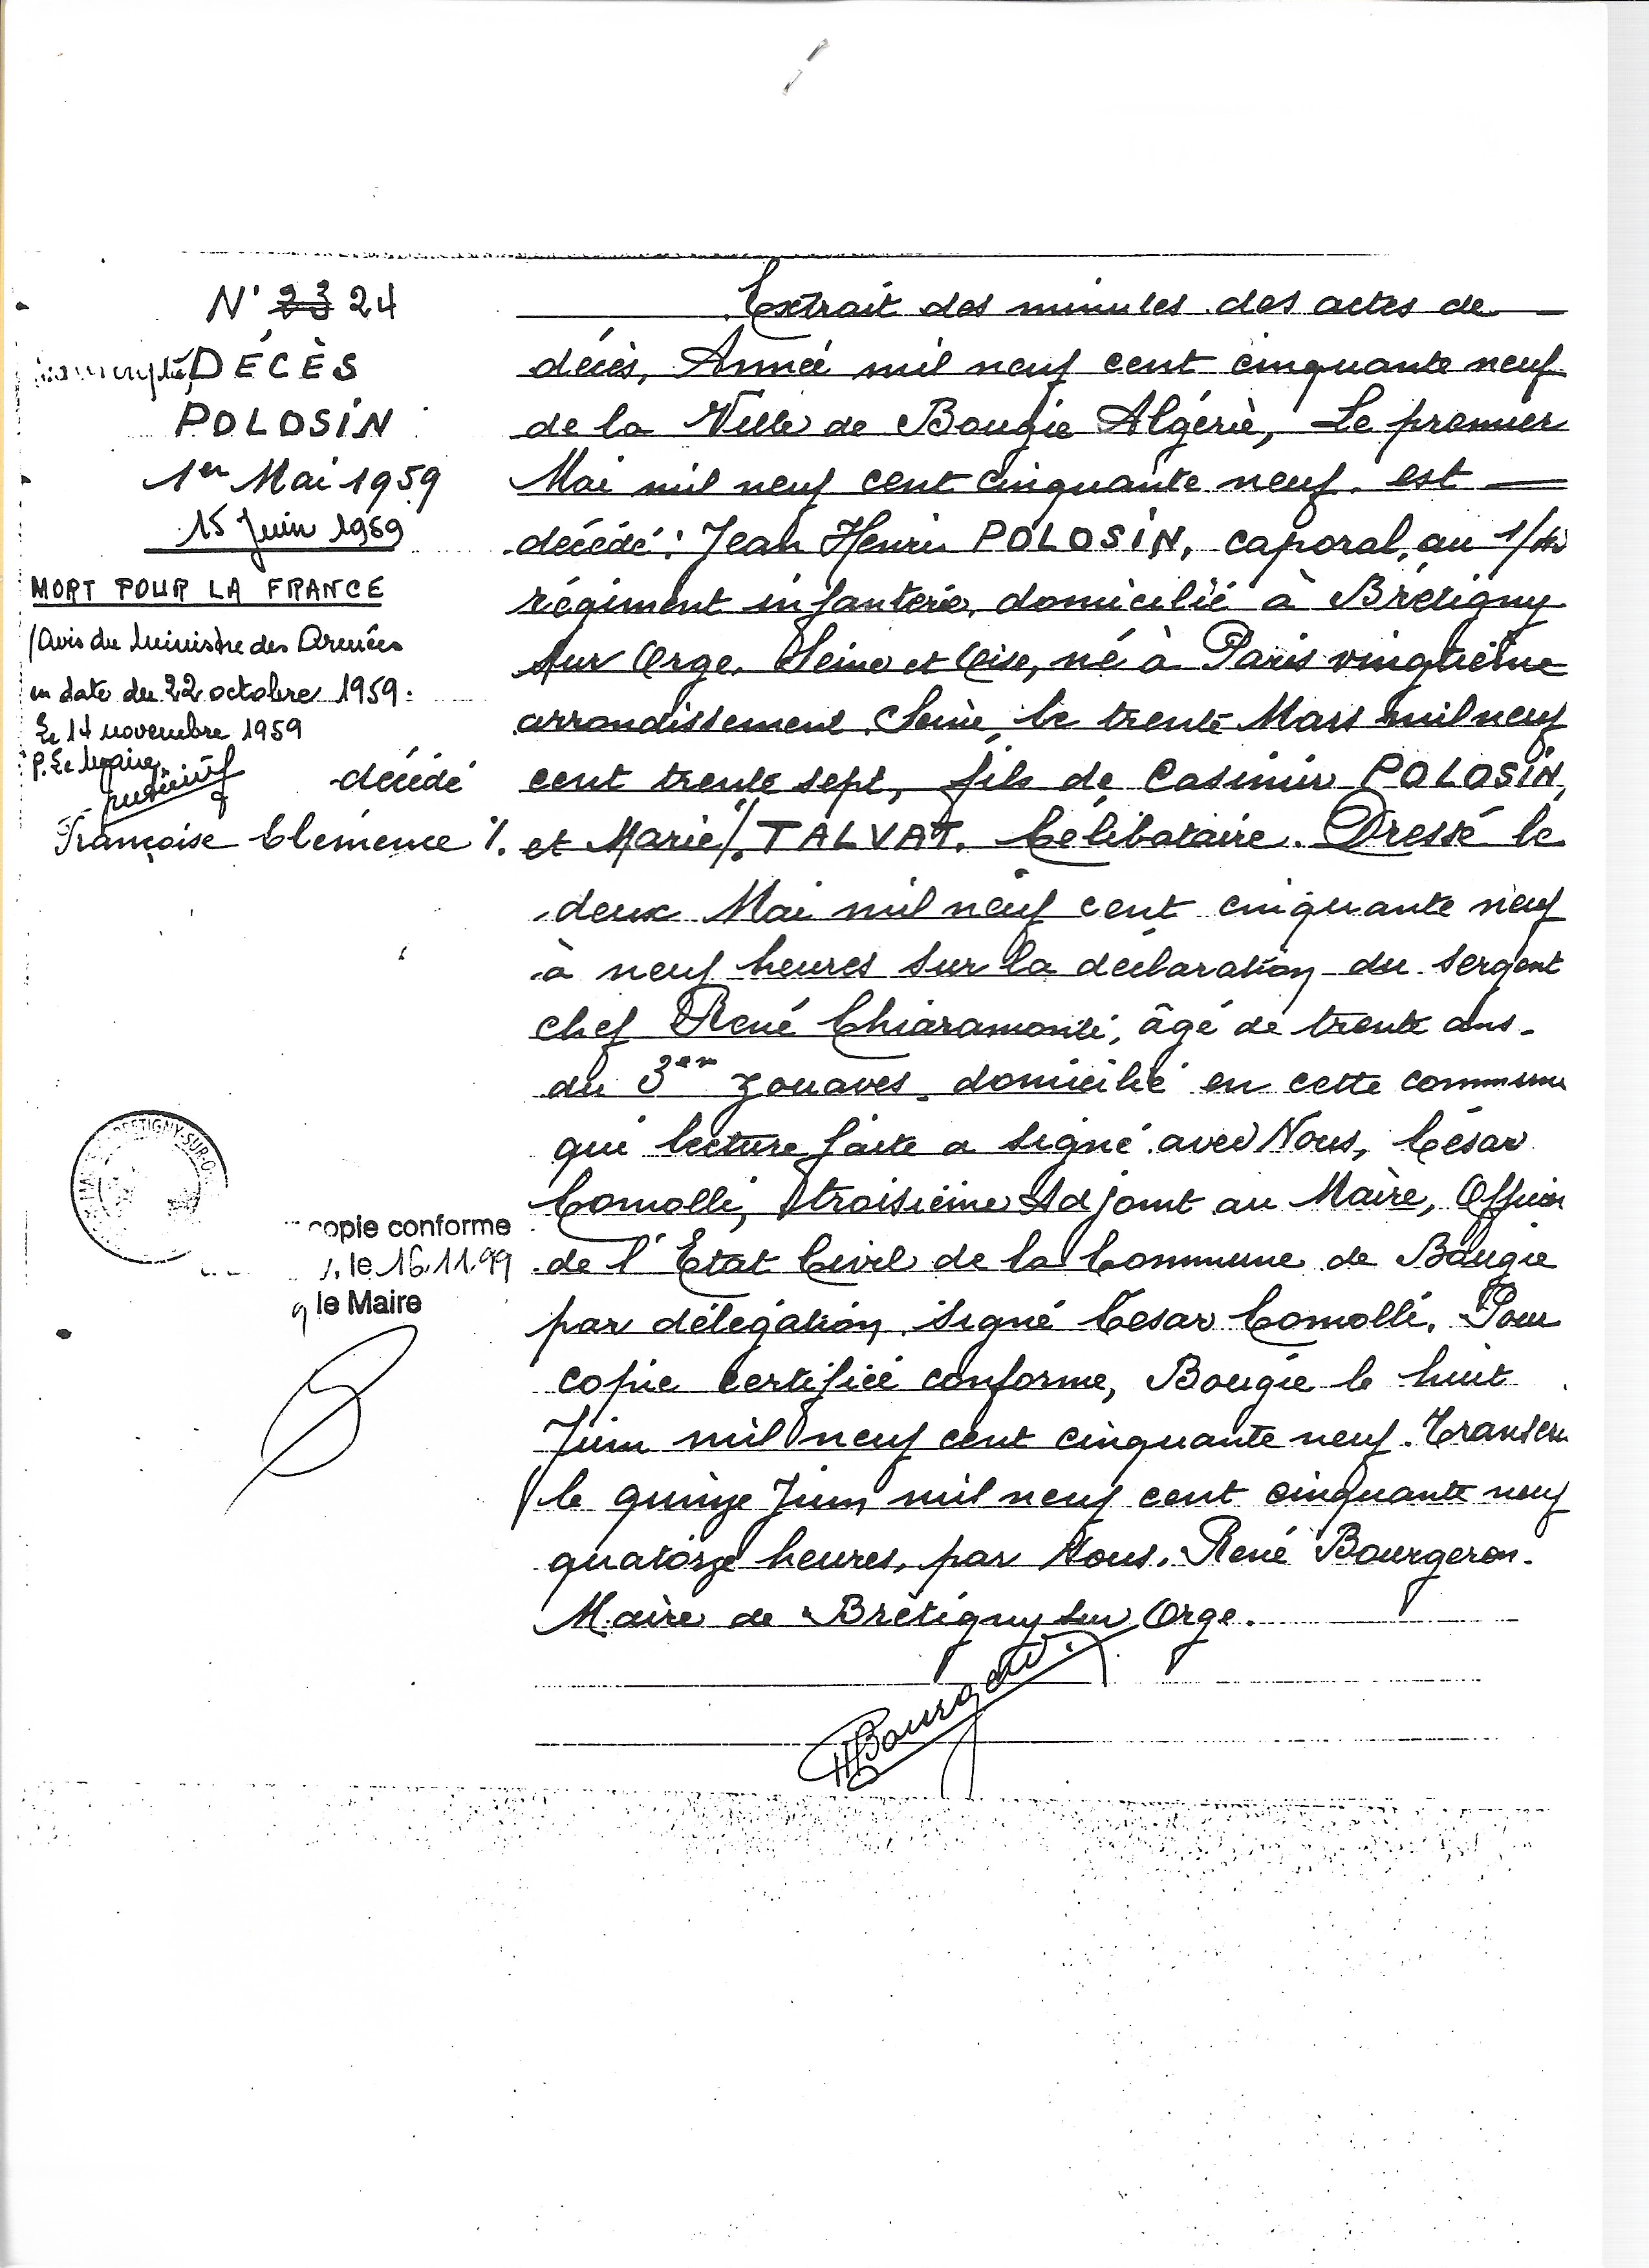 N° 23 24
DÉCÈS
POLOSIN
1er Mai 1959
15 Juin 1959
MORT POUR LA FRANCE
Avis du Ministre des Armées
en date du 22 octobre 1959.
Le 14 novembre 1959
P. Le Maire
décédé
Françoise Clémence /.
copie conforme
, le 16.11.99
le Maire
BRETIGNY-SUR-O
Extrait des minutes des actes de
décès, Année mil neuf cent cinquante neuf
de la Ville de Bougie Algérie, Le premier
Mai mil neuf cent cinquante neuf. est
décédé : Jean Henri POLOSIN, caporal, au 1/
régiment infanterie, domicilié à Brétigny
sur Orge. Seine et Oise, né à Paris vingtième
arrondissement. Seine, le trente Mars mil neuf
cent trente sept, fils de Casimir POLOSIN,
et Marie /. TALVAT. Célibataire. Dressé le
deux Mai mil neuf cent cinquante neuf
à neuf heures sur la déclaration du sergent
chef René Chiaramonti, âgé de trente ans.
du 3em zouaves. domicilié en cette commune
qui lecture faite a signé avec Nous, César
Comolli, troisième Adjoint au Maire, Officier
de l'Etat Civil de la Commune de Bougie
par délégation. signé César Comolli. Pour
copie certifiée conforme, Bougie le huit
Juin mil neuf cent cinquante neuf. Transcrit
le quinze Juin mil neuf cent cinquante neuf
quatorze heures, par Nous. René Bourgeron.
Maire de Brétigny sur Orge.